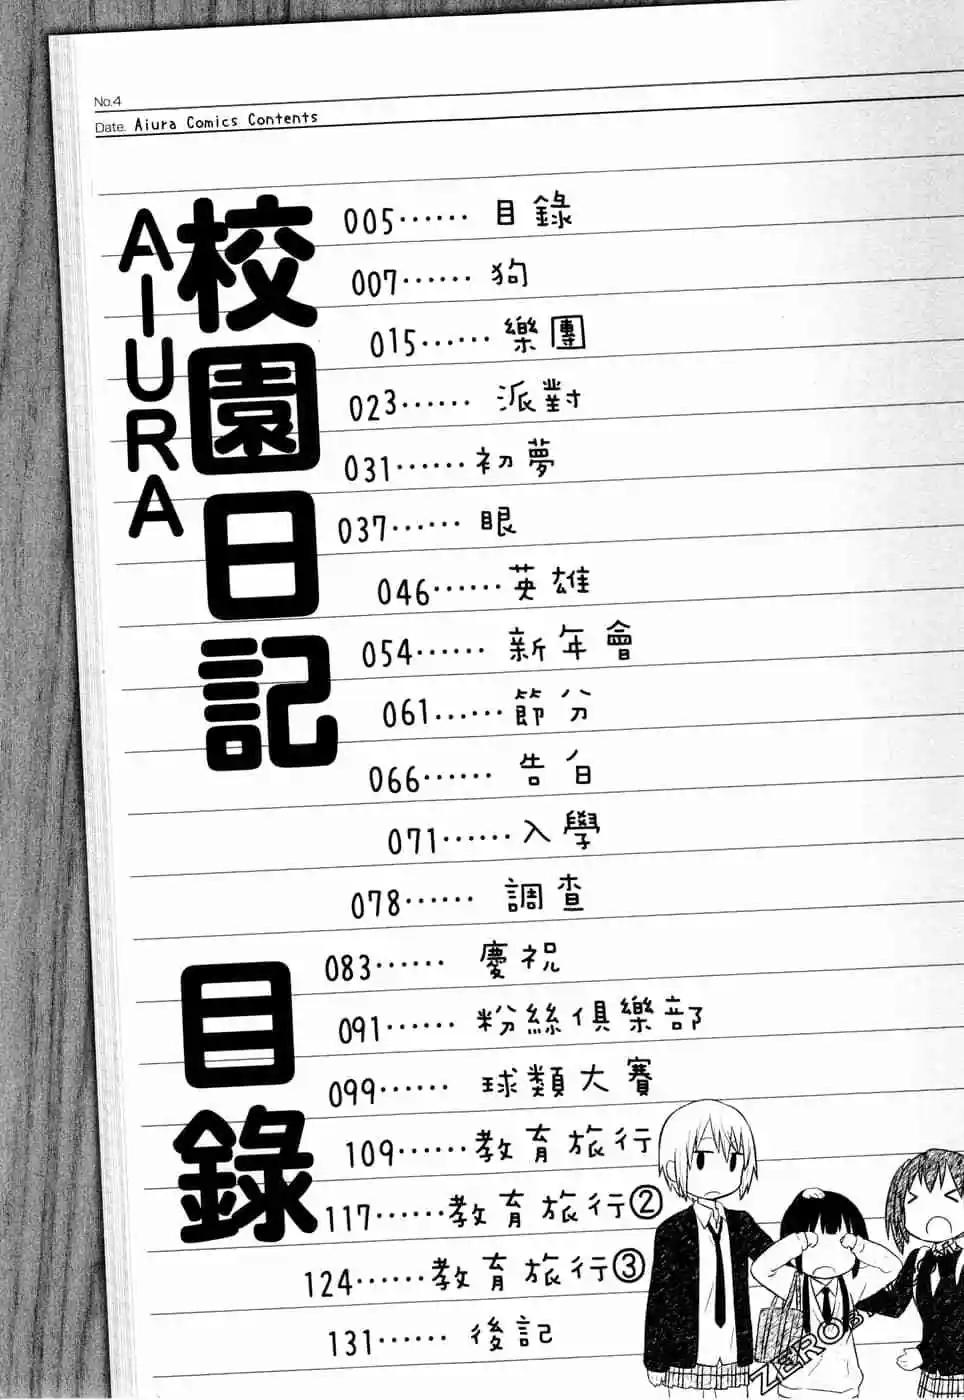 No.4
Date. Aiura Comics Contents
AIURA
校園日記
目錄
005…… 目錄
007…… 狗
015…… 樂團
023…… 派對
031……初夢
037…… 眼
046……英雄
054…… 新年會
061……節分
066…… 告白
071……入學
078…… 調查
083…… 慶祝
091…… 粉絲俱樂部
099…… 球類大賽
109……教育旅行
117……教育旅行②
124……教育旅行③
131…… 後記